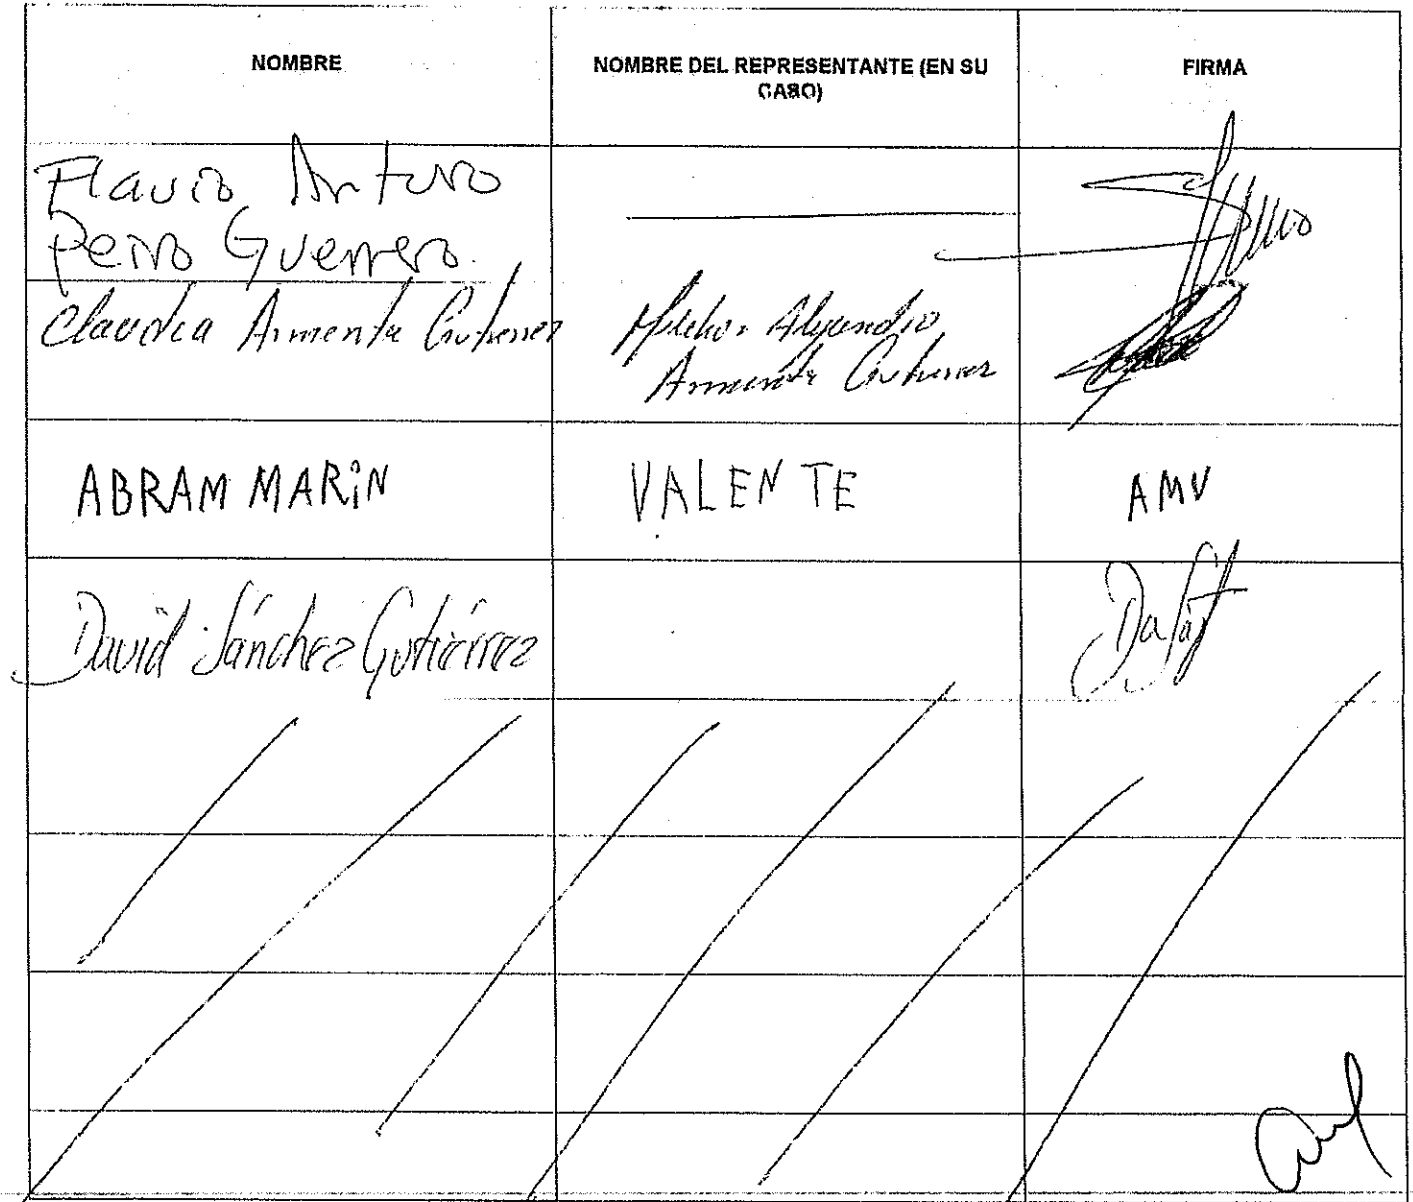 NOMBRE
NOMBRE DEL REPRESENTANTE (EN SU
CASO)
FIRMA
Flavio Arturo
Guerrero
Claudia Armenta Gutierrez
Melchor Alejandro
Armenta Gutierrez
ABRAM MARiN
VALENTE
AMV
David Sánchez Gutiérrez